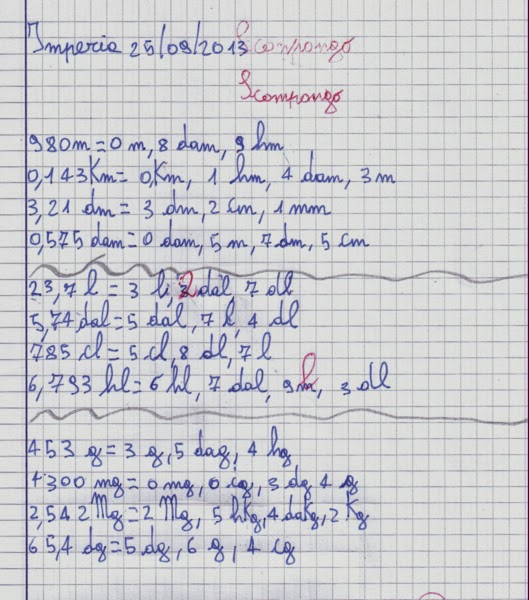 Imperia 25/09/2013 Scompongo
Scompongo
980m=0 m, 8 dam, 9 hm
0,143Km= 0,Km, 1 hm, 4 dam, 3 m
3,21 dm = 3 dm, 2 cm, 1 mm
0,575 dam=0 dam, 5 m, 7 dm, 5 cm
23,7 l = 3 l, 2 dal, 7 dl
5,74 dal=5 dal, 7 l, 4 dl
785 cl = 5 cl, 8 dl, 7 l
6,793 hl=6 hl, 7 dal, 9 l, 3 dl
453 g = 3 g, 5 dag, 4 hg
4300 mg = 0 mg, 0 cg, 3 dg 4 g
2,542 Mg=2 Mg, 5 hKg, 4 daKg, 2 Kg
65,4 dg=5 dg, 6 g, 4 cg